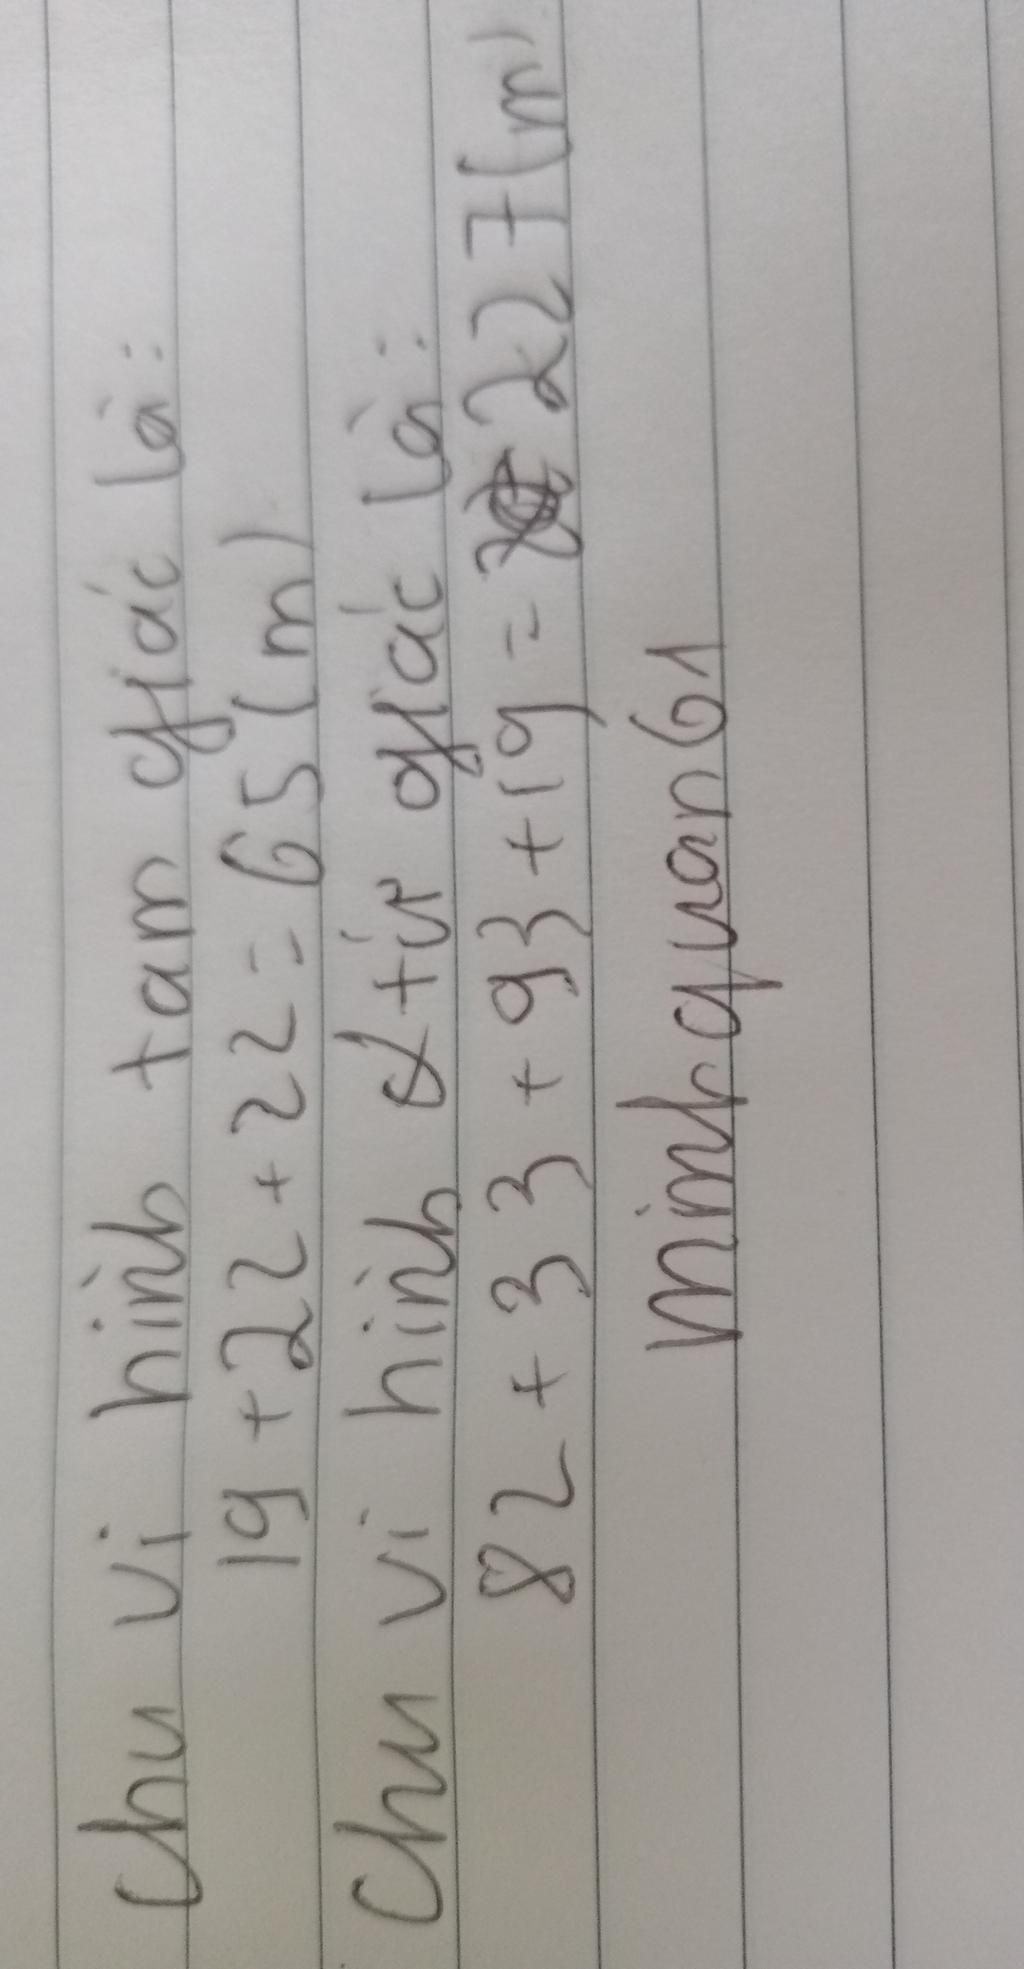 Chu vi hình tam giác là:
19 + 22 + 22 = 65 (m)
Chu vi hình tứ giác là:
82 + 33 + 93 + 19 = 227 (m)
minhquan61